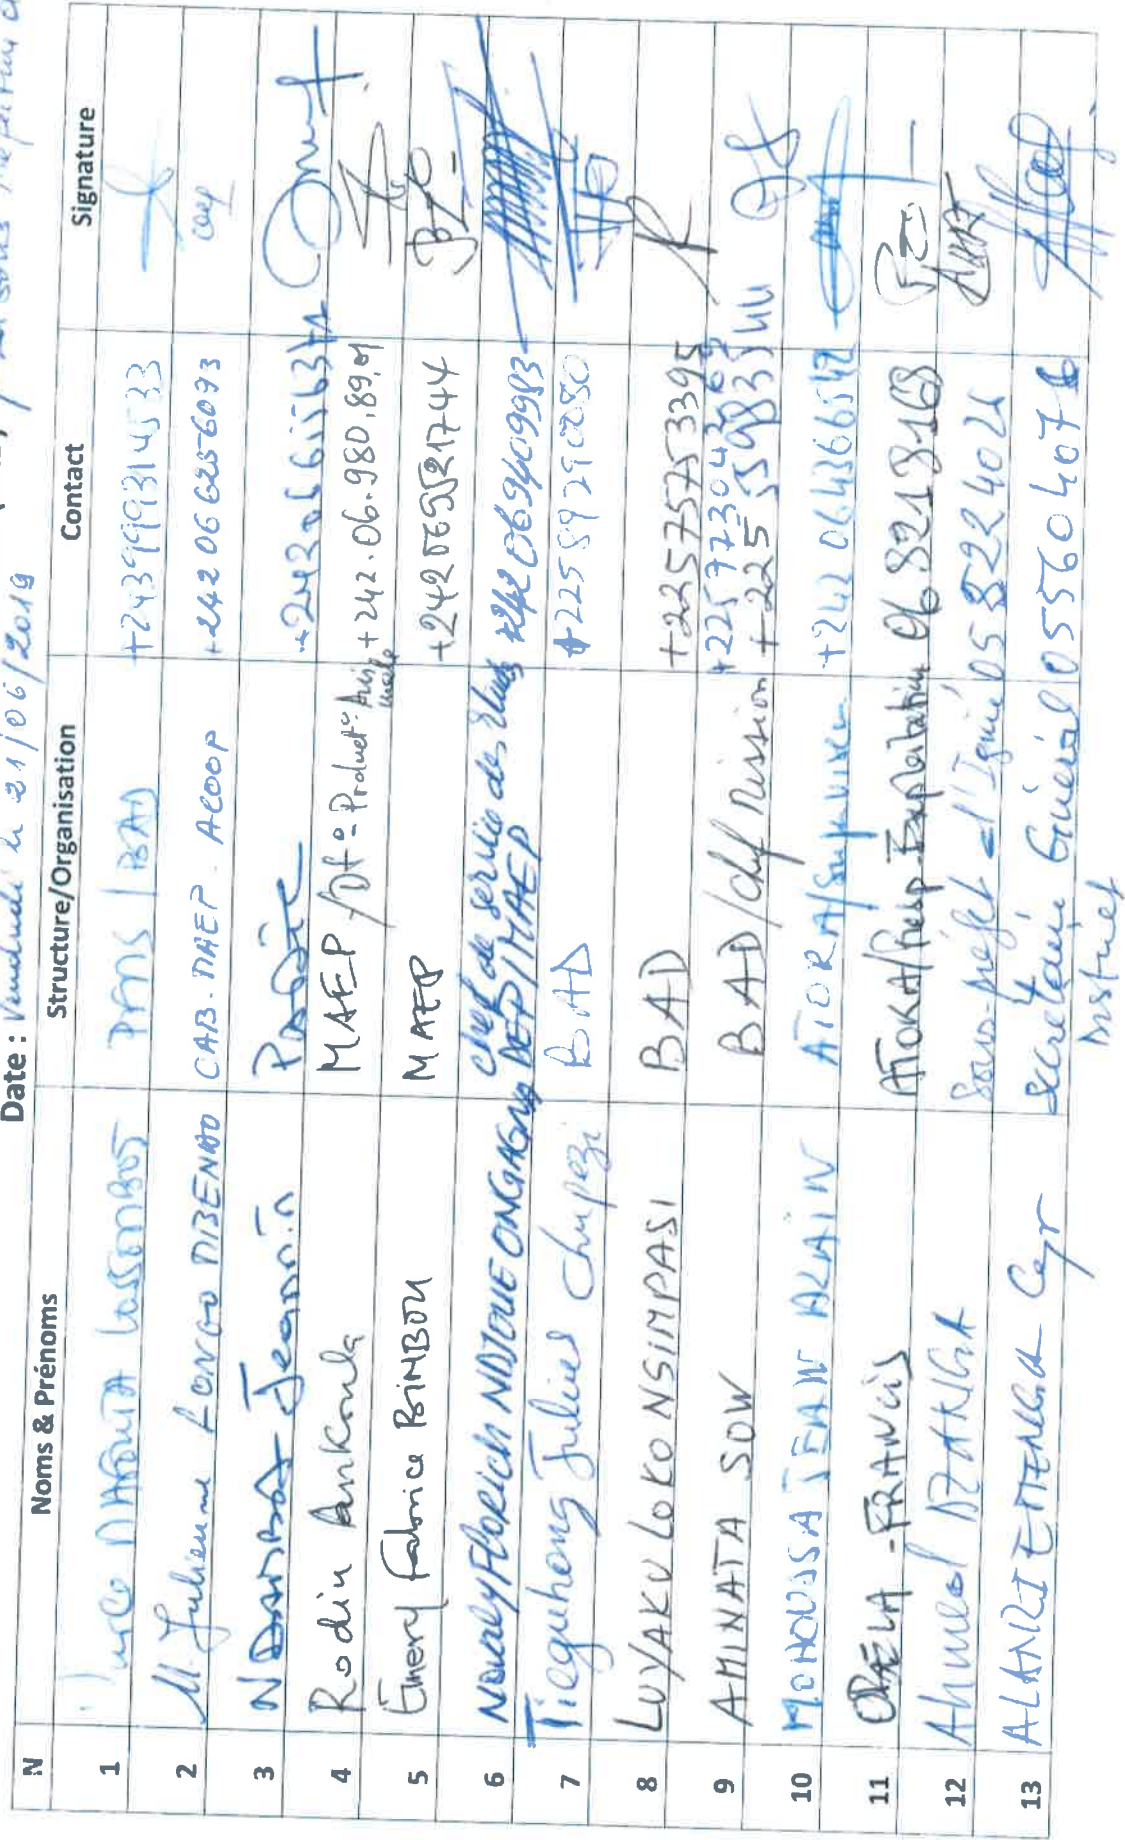 Date : Vendredi le 21/06/2019
N Noms & Prénoms Structure/Organisation Contact Signature
1 PMS / BAD +243999314533
2 M. Julienne LONGO MBENAO CAB. MAEP. ACOOP +242 06 625 6093
3 NDAMBA Jeannin PADIC
4 Rodin Ankoula MAEP /Dt° Product° Ani +242.06.980.89.01
male
5 Emery Fabrice BIMBOU MAEP +242 069521744
6 NGUELY FLORICH NDJOUE ONGAGNA Chef de service des Etudes +242 069409983
DEP/MAEP
7 Tieguhong Julius Chupezi BAD +225 89290080
8 LUYAKU LOKO NSIMPASI BAD +22575753395
9 AMINATA SOW BAD/Chef Mission +22577304369
+225 59835944
10 MOHOUSSA JEAN ALAIN ATORA/Superviseur +242 064366542
11 OBELA - FRANCIS ATORA/Resp Exploitation 06 821 81 68
12 Ahmed DZANGA Sous-préfet d'Ignié 05 522 40 21
13 ALANDZI ETTENGA Cyr Secrétaire Général 05 560 407 6
District